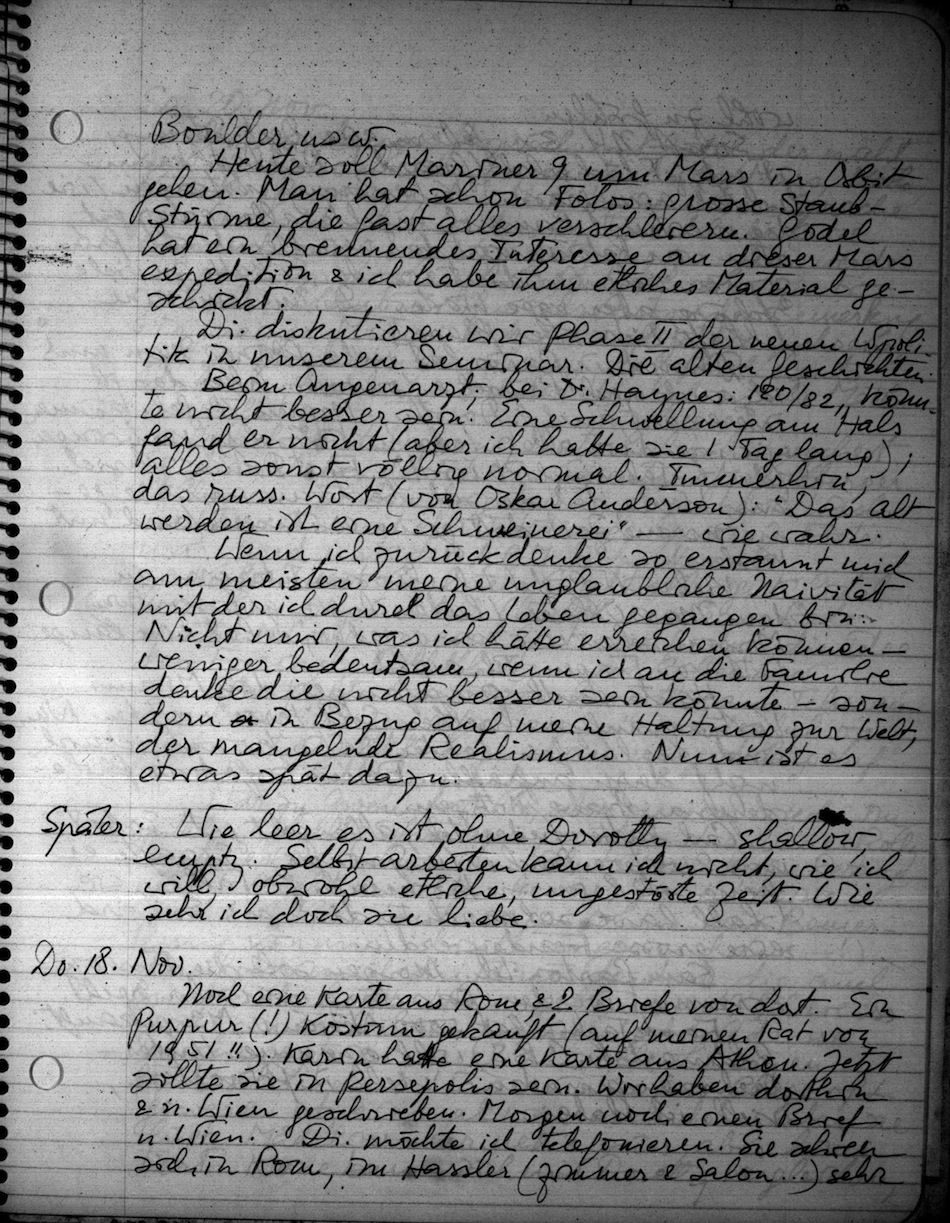 Boulder usw.
Heute soll Mariner 9 um Mars in Orbit
gehen. Man hat schon Fotos: grosse Staub-
Stürme, die fast alles verschleiern. Gödel
hat ein brennendes Interesse an dieser Mars
expedition & ich habe ihm etliches Material ge-
schickt.
Di. diskutieren wir Phase II der neuen Wpoli-
tik in unserem Seminar. Die alten Geschichten.
Beim Augenarzt, bei Dr. Haynes: 120/82, könn-
te nicht besser sein. Eine Schwellung am Hals
fand er nicht (aber ich hatte sie 1 Tag lang);
alles sonst völlig normal. Immerhin,
das russ. Wort (von Oskar Anderson): "Das alt
werden ist eine Schweinerei" — wie wahr.
Wenn ich zurückdenke so erstaunt mich
am meisten meine unglaubliche Naivität
mit der ich durch das Leben gegangen bin.
Nicht nur, was ich hätte erreichen können —
weniger bedeutsam, wenn ich an die Familie
denke die nicht besser sein könnte – son-
dern in Bezug auf meine Haltung zur Welt,
der mangelnde Realismus. Nun ist es
etwas spät dazu.
Später: Wie leer es ist ohne Dorothy — shallow,
empty. Selbst arbeiten kann ich nicht, wie ich
will, obwohl etliche, ungestörte Zeit. Wie
sehr ich doch sie liebe.
Do. 18. Nov.
Noch eine Karte aus Rom, & 2 Briefe von dort. Ein
Purpur (!) Kostüm gekauft (auf meinen Rat von
1951!!). Karin hatte eine Karte aus Athen. Jetzt
sollte sie in Persepolis sein. Wir haben dorthin
& n. Wien geschrieben. Morgen noch einen Brief
n. Wien. Di. möchte ich telefonieren. Sie schien
sich in Rom, im Hassler (Zimmer & Salon...) sehr